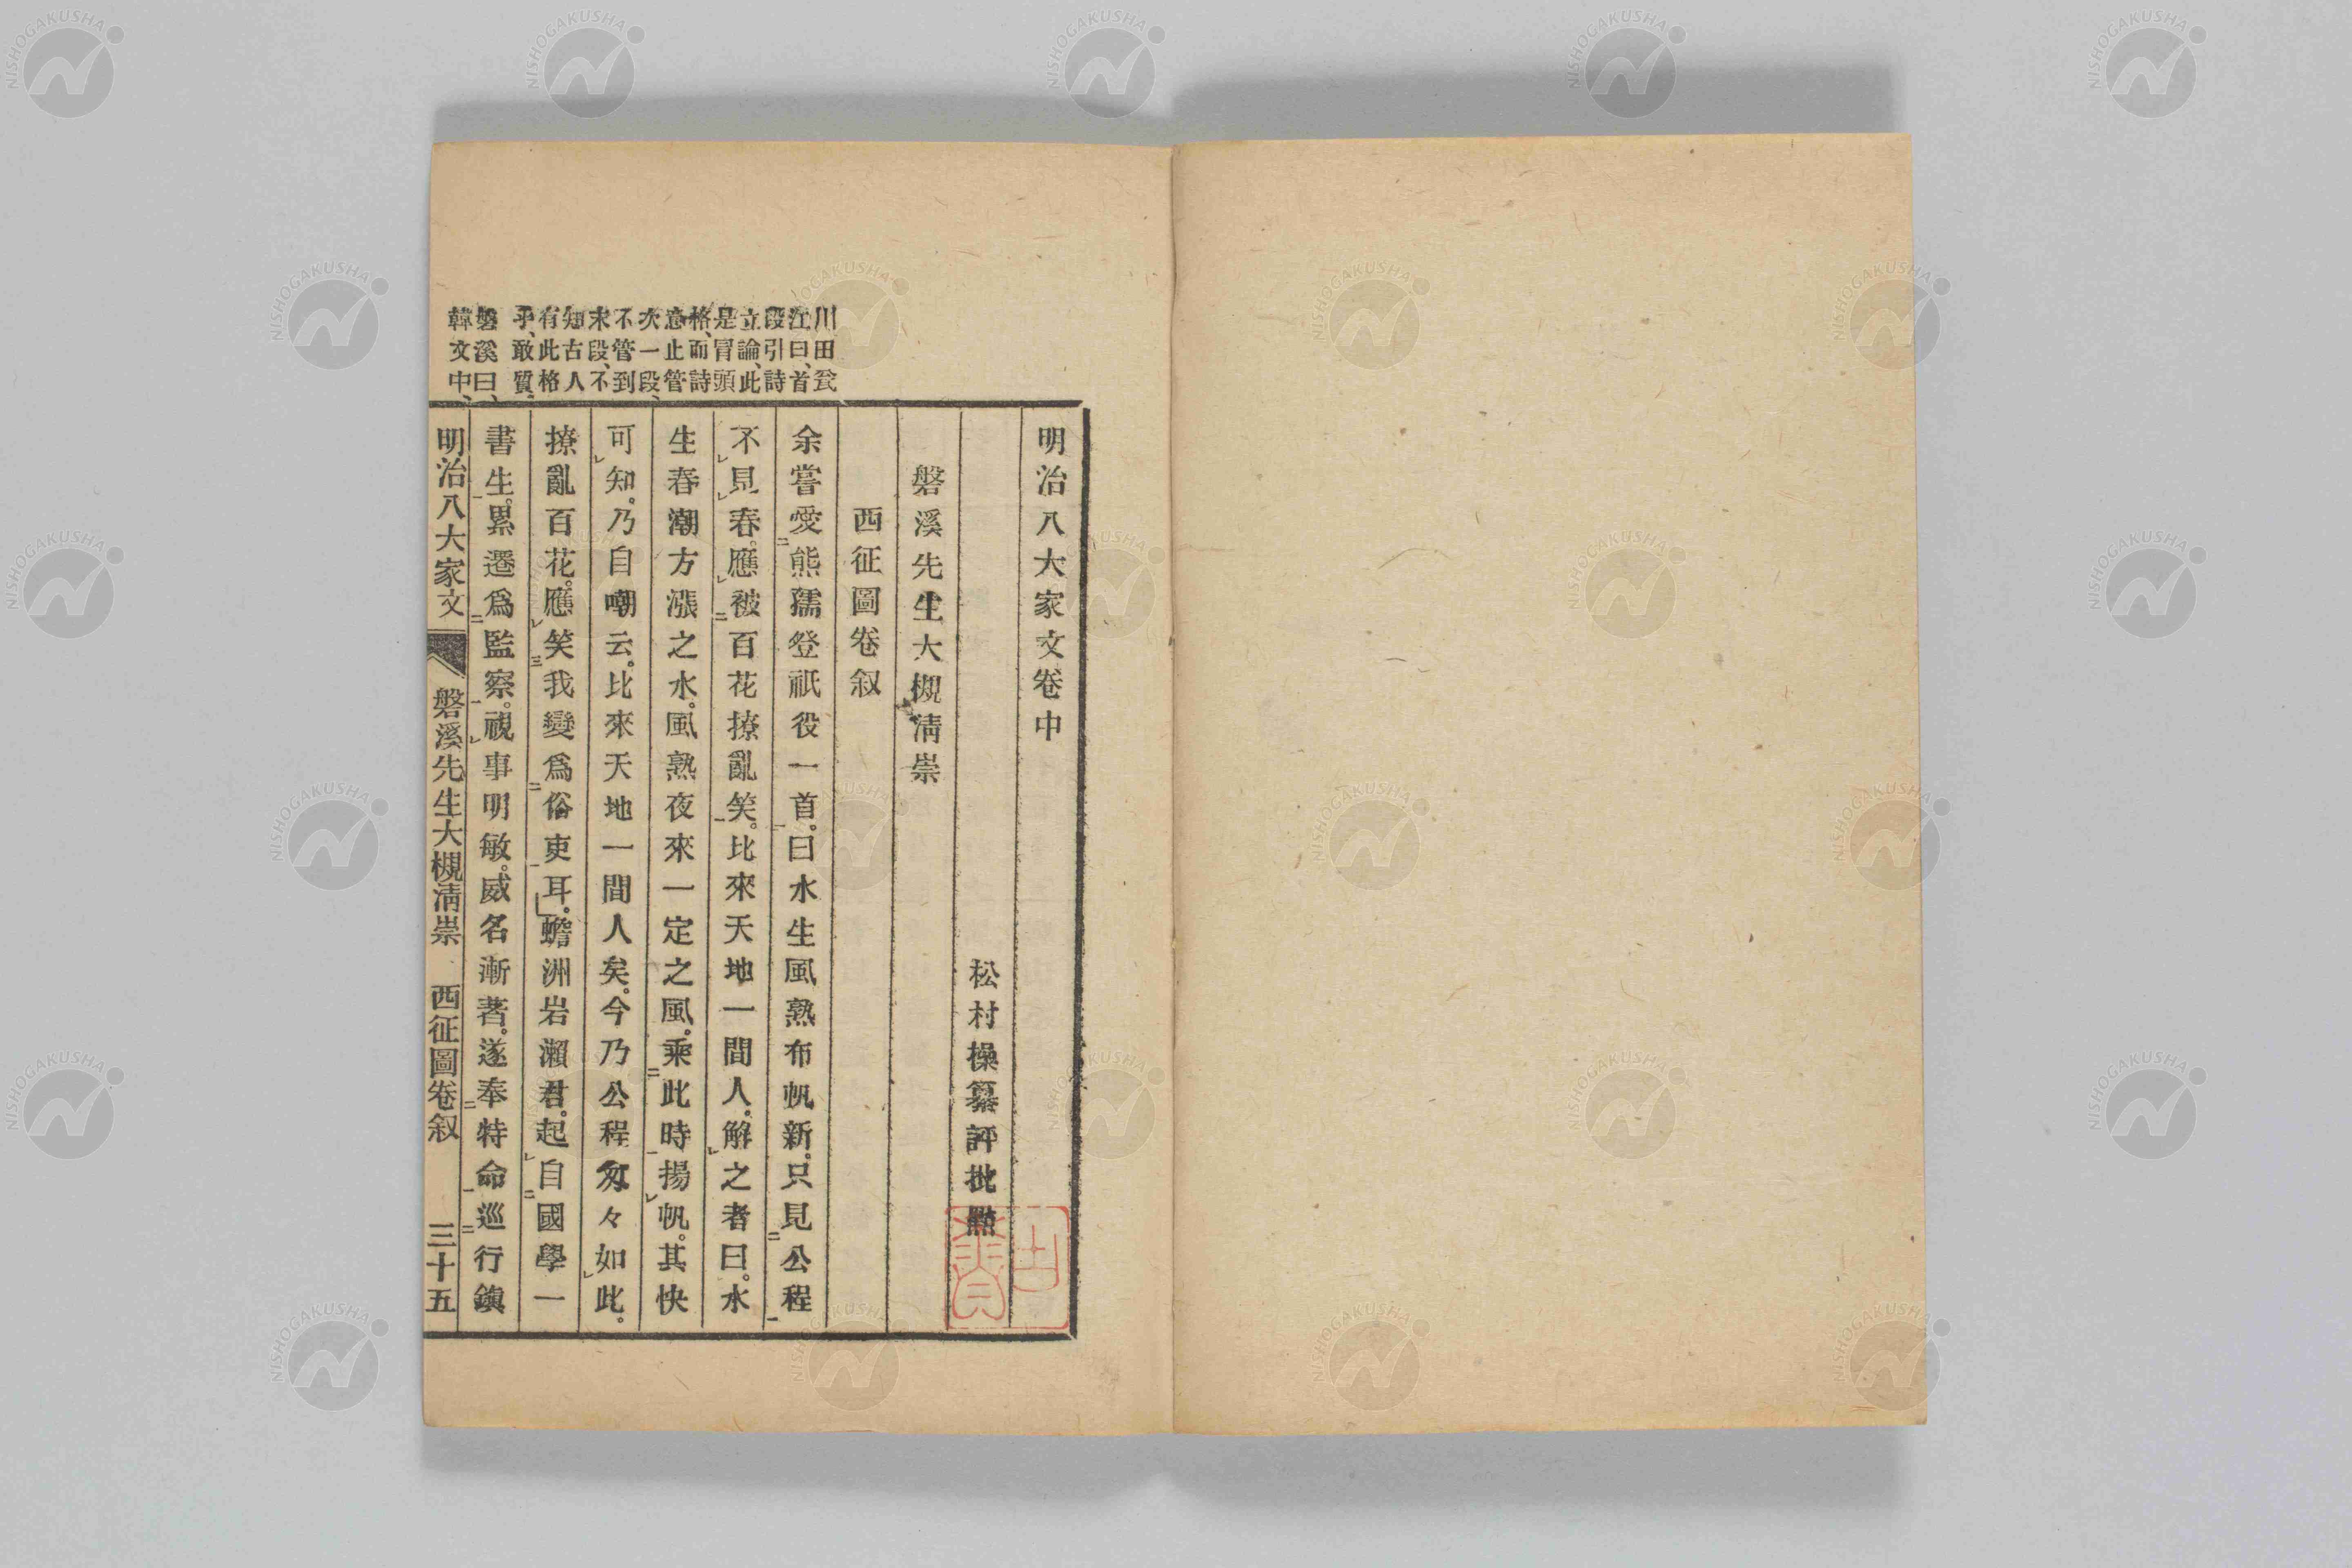 明治八大家文卷中
松村操纂評批點
磐溪先生大槻淸崇
西征圖卷叙
余嘗愛熊孺登祇役一首。曰水生風熟布帆新。只見公程
不見春。應被百花撩亂笑。比來天地一間人。解之者曰。水
生春潮方漲之水。風熟夜來一定之風。乘此時揚帆。其快
可知。乃自嘲云。比來天地一間人矣。今乃公程匆々如此。
撩亂百花。應笑我變爲俗吏耳。蟾洲岩瀨君。起自國學一
書生。累遷爲監察。視事明敏。威名漸著。遂奉特命巡行鎭
川田瓮
江曰、首
段引詩
立論、此
是冒頭
格、而詩
意止管
次一段、
不管到
末段、不
知古人
有此格
乎、敢質、
磐溪曰、
韓文中、
明治八大家文 磐溪先生大槻淸崇 西征圖卷叙 三十五
NISHOGAKUSHA